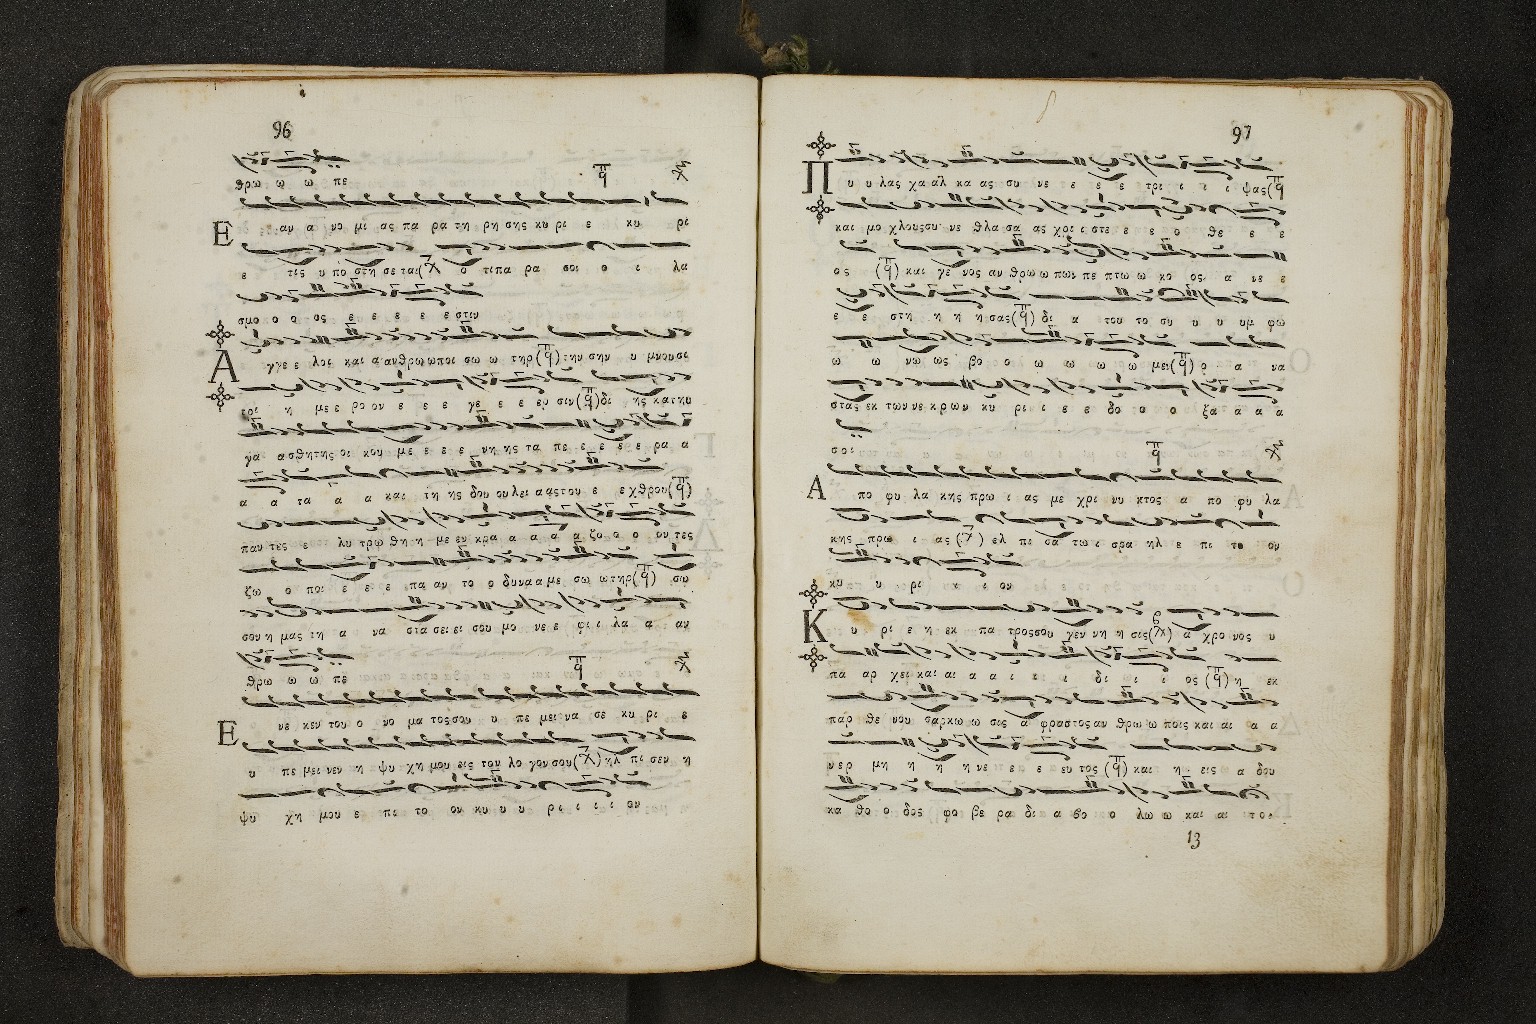 96
θρω ω ω πε
Ε αν α νο μι ας πα ρα τη ρη σης κυ ρι ε κυ ρι
ε τις υ πο στη σε ται ο τι πα ρα σοι ο ι λα
σμο ο ο ος ε ε ε ε ε στιν
Α γγε ε λοι και α ανθρω ωποι σω ω τηρ την σην υ μνουσι
τοι η με ε ρο ον ε ε ε γε ε ε ερ σιν δι ης κατηυ
γα ασθητης οι κου με ε ε ε νη ης τα πε ε ε ε ε ρα α
α α τα α α και τη ης δου ου λει ας του ε εχθρου
παν τες ε λυ τρω θη η με εν κρα α α α α ζο ο ο ον τες
ζω ο ποι ε ε ε ε πα αν το ο δυνα α με σω ω τηρ σω
σον η μας τη α να στα σει ει σου μο νε ε φι ι λα α αν
θρω ω ω πε
Ε νε κεν του ο νο μα τος σου υ πε μει να σε κυ ρι ε
υ πε μει νεν η ψυ χη μου εις τον λο γον σου ηλ πι σεν η
ψυ χη μου ε πι το ον κυ υ υ ρι ι ι ι ον
97
Π υ υ λας χα αλ κα ας συ νε ε ε ε τρι ι ι ι ψας
και μο χλους συ νε θλα σα ας χρι ι στε ε ε ε ο θε ε ε
ος και γε νος αν θρω ω πων πε πτω ω κο ος α νε ε
ε ε στη η η η σας δι α του το συ υ υ υμ φω
ω ω νω ως βο ο ω ω ω ω ω μεν ο α να
στας εκ των νε κρων κυ ρι ι ε ε δο ο ο ξα α α α
σοι
Α πο φυ λα κης πρω ι ας με χρι νυ κτος α πο φυ λα
κης πρω ι ας ελ πι σα τω ισρα ηλ ε πι το ον
κυ υ ρι ι ι ον
Κ υ ρι ε η εκ πα τρος σου γεν νη η σις α χρο νος υ
πα αρ χει και αι α α ι ι ι δι ι ι ι ος η εκ
παρ θε νου σαρκω ω σις α φραστος αν θρω ω ποις και αι α α
νερ μη η η η νε ε ε ευ τος και η εις α δου
κα θο ο δος φο βε ρα δι α βο ο λω ω και αι το
13